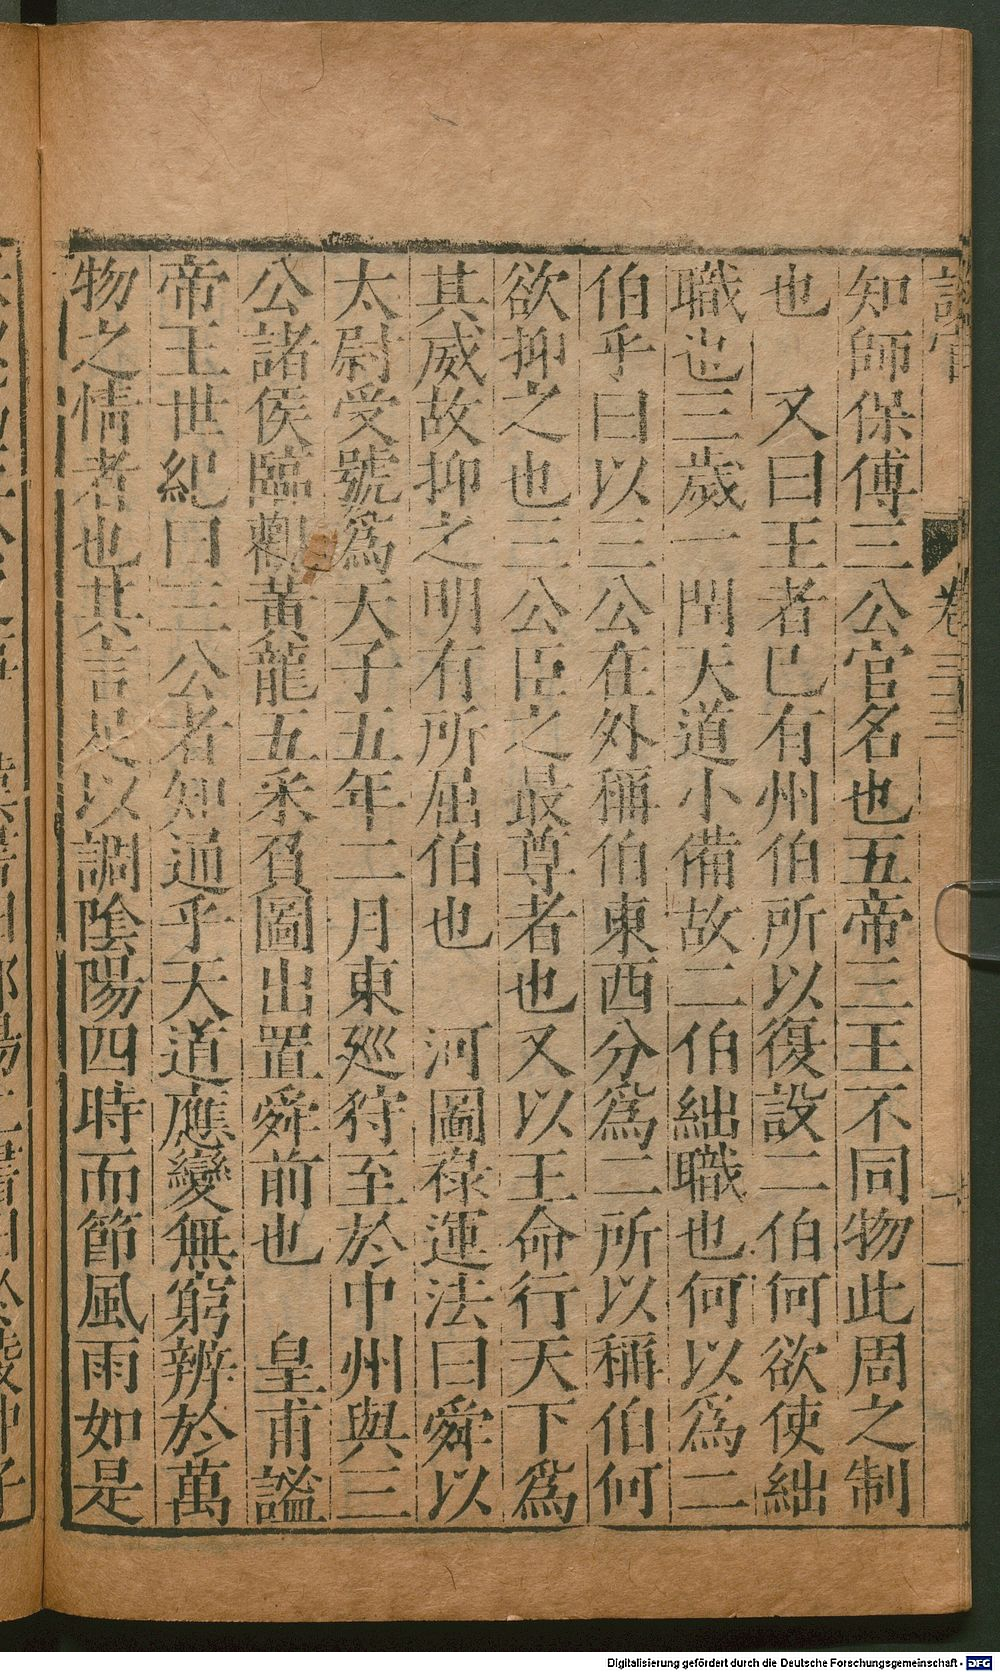 知師保傅三公官名也五帝三王不同物此周之制
也　又曰王者已有州伯所以復設二伯何欲使絀
職也三歲一閏天道小備故二伯絀職也何以爲二
伯乎曰以三公在外稱伯東西分爲二所以稱伯何
欲抑之也三公臣之最尊者也又以王命行天下爲
其威故抑之明有所屈伯也　河圖祿運法曰舜以
太尉受號爲天子五年二月東廵狩至於中州與三
公諸侯臨觀黃龍五釆負圖出置舜前也　皇甫謐
帝王世紀曰三公者知通乎天道應變無窮辨於萬
物之情者也其言足以調陰陽四時而節風雨如是
Digitalisierung gefördert durch die Deutsche Forschungsgemeinschaft - DFG